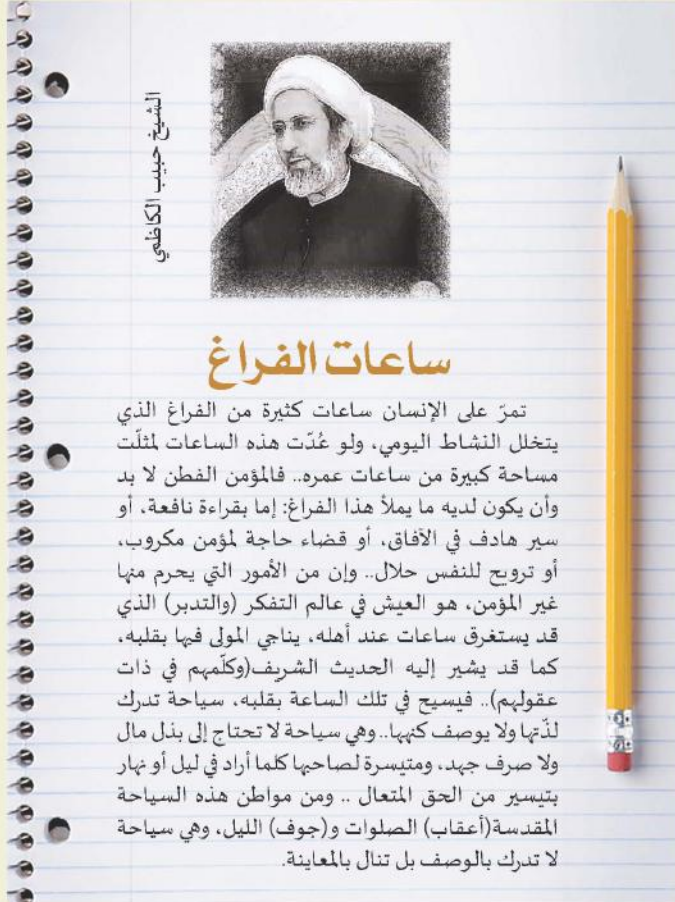 الشيخ حبيب الكاظمي
ساعات الفراغ
تمرّ على الإنسان ساعات كثيرة من الفراغ الذي
يتخلل النشاط اليومي، ولو عُدّت هذه الساعات لمثلّت
مساحة كبيرة من ساعات عمره.. فالمؤمن الفطن لا بد
وأن يكون لديه ما يملأ هذا الفراغ: إما بقراءة نافعة، أو
سير هادف في الآفاق، أو قضاء حاجة لمؤمن مكروب،
أو ترويح للنفس حلال.. وإن من الأمور التي يحرم منها
غير المؤمن، هو العيش في عالم التفكر (والتدبر) الذي
قد يستغرق ساعات عند أهله، يناجي المولى فيها بقلبه،
كما قد يشير إليه الحديث الشريف(وكلّمهم في ذات
عقولهم).. فيسيح في تلك الساعة بقلبه، سياحة تدرك
لذّتها ولا يوصف كنهها.. وهي سياحة لا تحتاج إلى بذل مال
ولا صرف جهد، ومتيسرة لصاحبها كلما أراد في ليل أو نهار
بتيسير من الحق المتعال .. ومن مواطن هذه السياحة
المقدسة(أعقاب) الصلوات و(جوف) الليل، وهي سياحة
لا تدرك بالوصف بل تنال بالمعاينة.